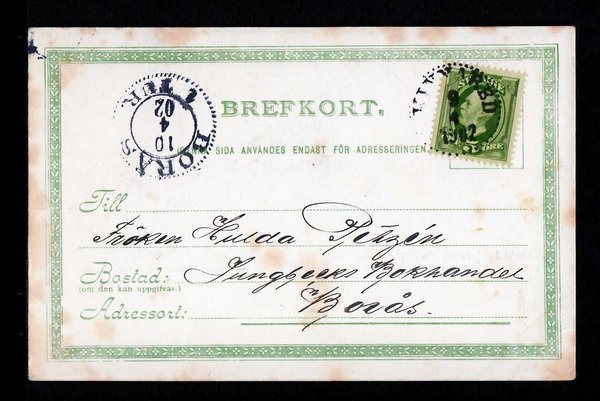 BREFKORT.
SIDA ANVÄNDES ENDAST FÖR ADRESSERINGEN.
BORÅS
1 TUR
10
4
02
1902
5 ÖRE
Till
Fröken Hulda Petzén
Bostad:
(om den kan uppgifvas.)
Ljungbecks Bokhandel
Adressort:
Borås.